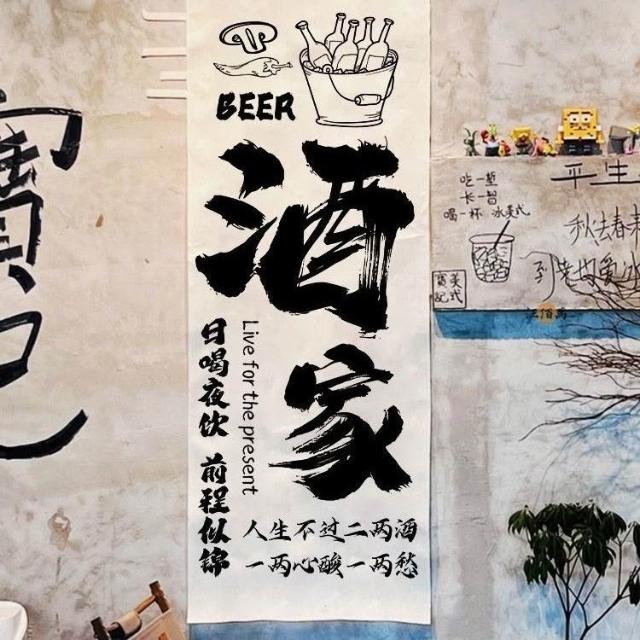 BEER
酒家
Live for the present
日喝夜饮 前程似锦
人生不过二两酒
一两心酸一两愁
寶記
吃一堑
长一智
喝一杯 冰美式
平生
秋去春来